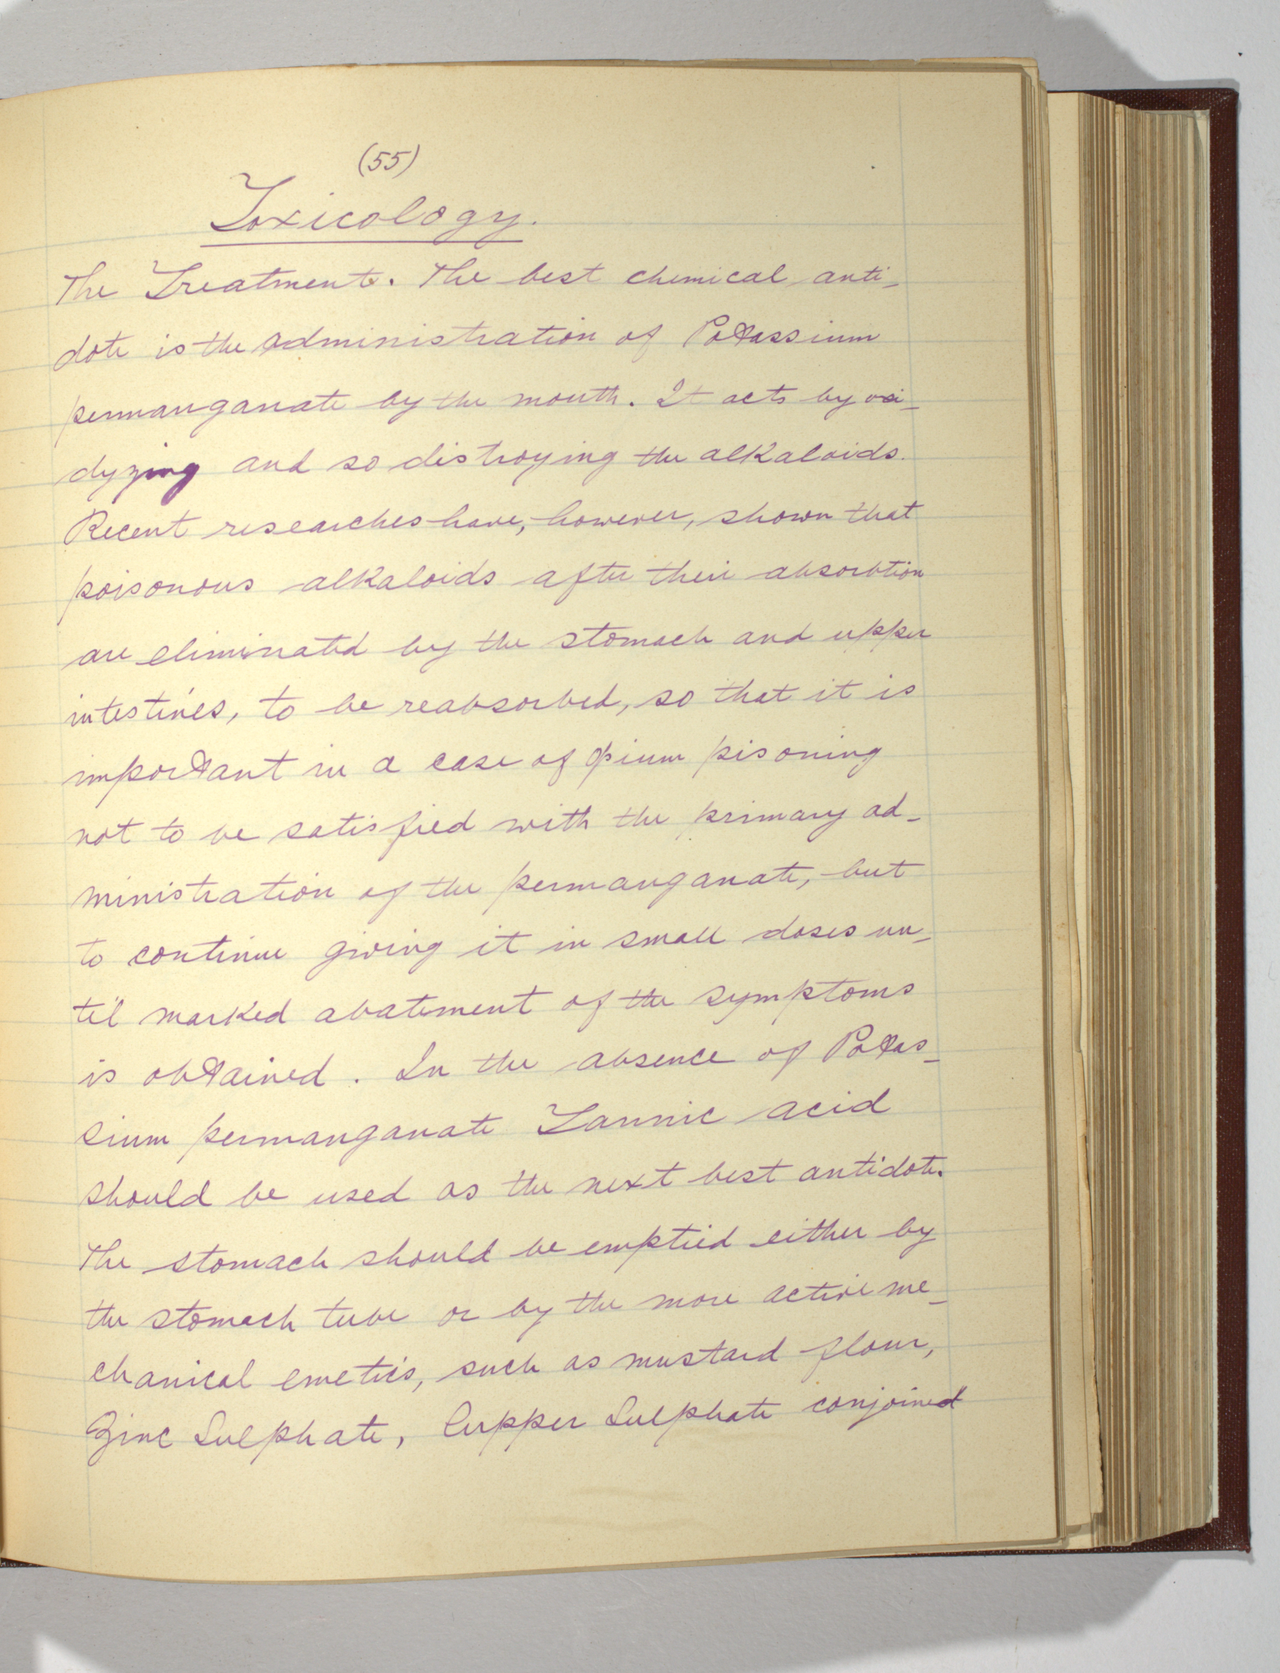 (55)
Toxicology.
The Treatment. The best chemical anti-
dote is the administration of Potassium
permanganate by the mouth. It acts by oxi-
dyzing and so distroying the alkaloids.
Recent researches have, however, shown that
poisonous alkaloids after their absorbtion
are eliminated by the stomach and upper
intestines, to be reabsorbed, so that it is
important in a case of opium pisoning
not to be satisfied with the primary ad-
ministration of the permanganate, but
to continue giving it in small doses un-
til marked abatement of the symptoms
is obtained. In the absence of Potas-
sium permanganate Tannic acid
should be used as the next best antidote.
The stomach should be emptied either by
the stomach tube or by the more active me-
chanical emetics, such as mustard flour,
Zinc Sulphate, Cupper Sulphate conjoined